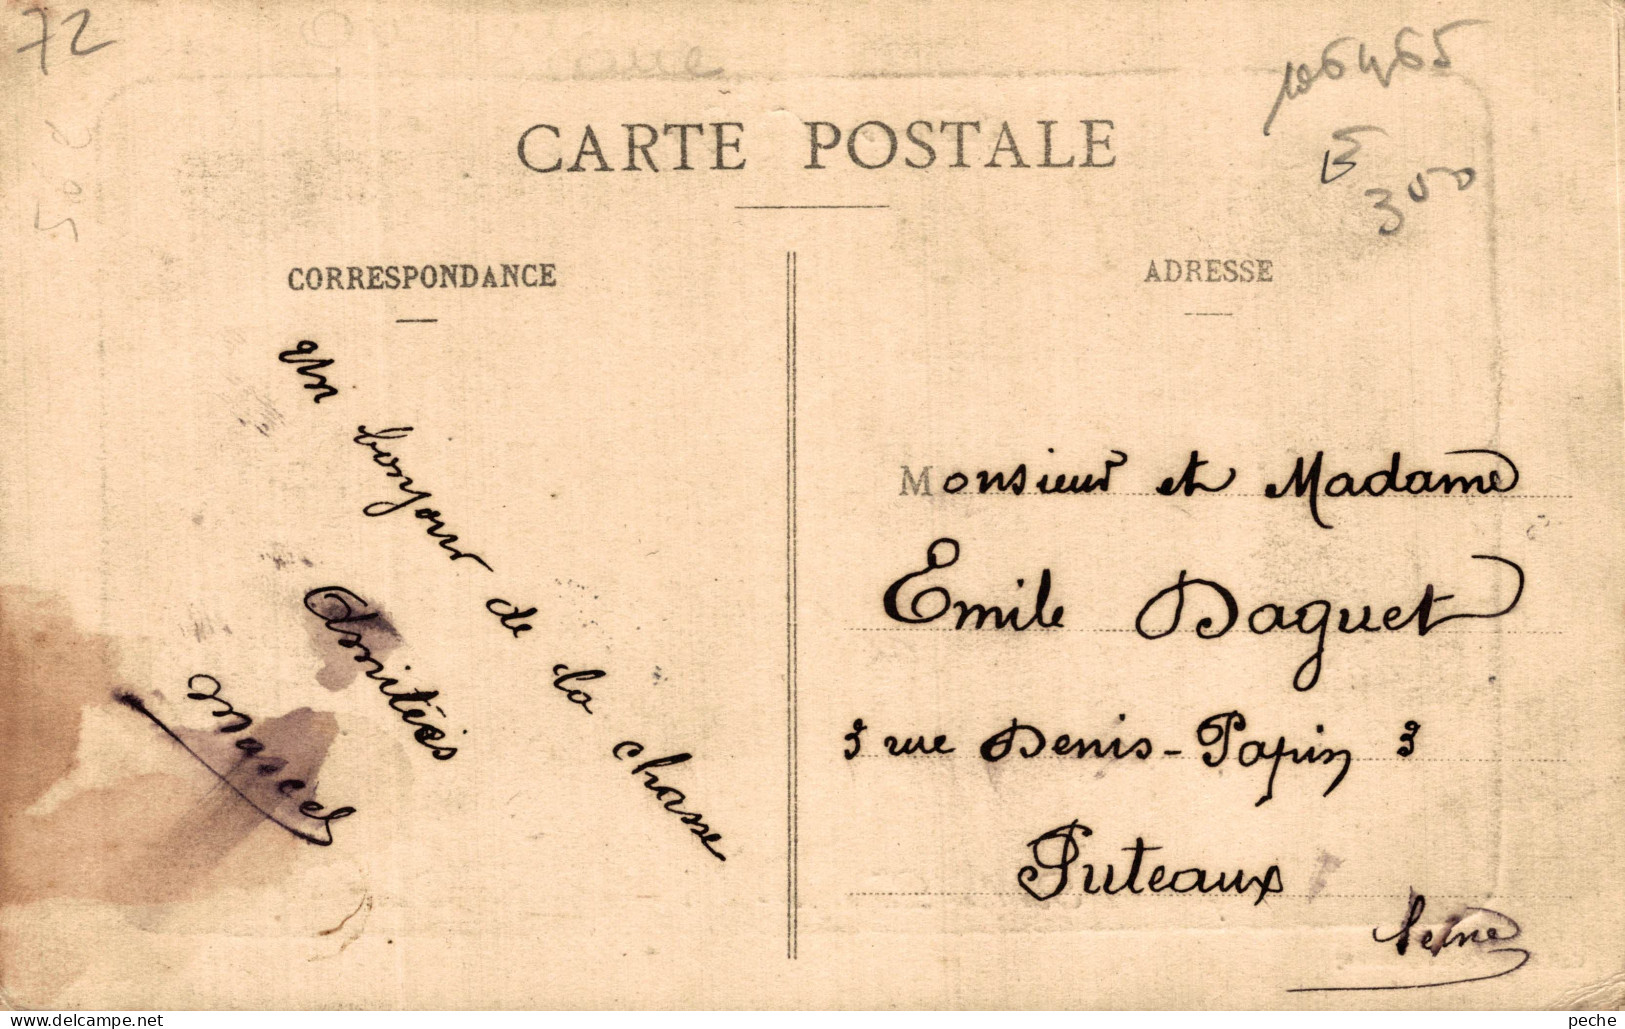 72
50c
CARTE POSTALE
CORRESPONDANCE
un bonjour de la chasse
Amitiés
Marcel
ADRESSE
Monsieur et Madame
Emile Daguet
3 rue Denis-Papin 3
Puteaux
Seine
peche